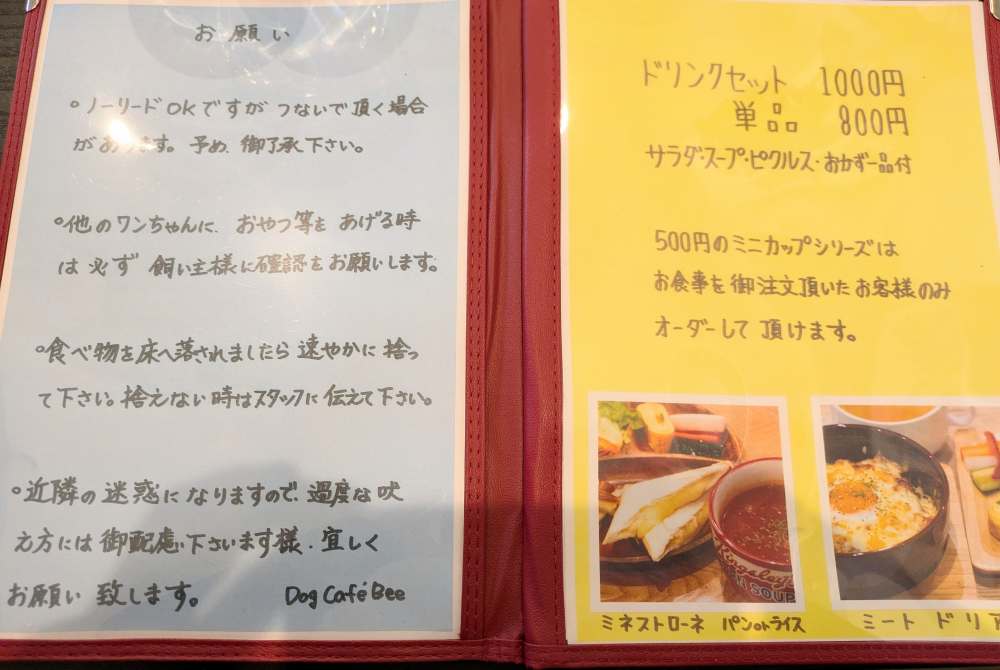 お願い
○ノーリードOKですが つないで頂く場合
があります。予め、御了承下さい。
○他のワンちゃんに、おやつ等を あげる時
は 必ず 飼い主様に確認をお願いします。
○食べ物を床へ落されましたら 速やかに 捨っ
て下さい。捨えない時はスタッフに 伝えて下さい。
○近隣の迷惑になりますので、過度な吠
え方には 御配慮下さいます様、宜しく
お願い 致します。 Dog Café Bee
ドリンクセット 1000円
単品 800円
サラダ・スープ・ピクルス・おかず一品付
500円のミニカップシリーズは
お食事を御注文頂いたお客様のみ
オーダーして 頂けます。
Kingsley's
SOUP
ミネストローネ パンorライス
ミート ドリア